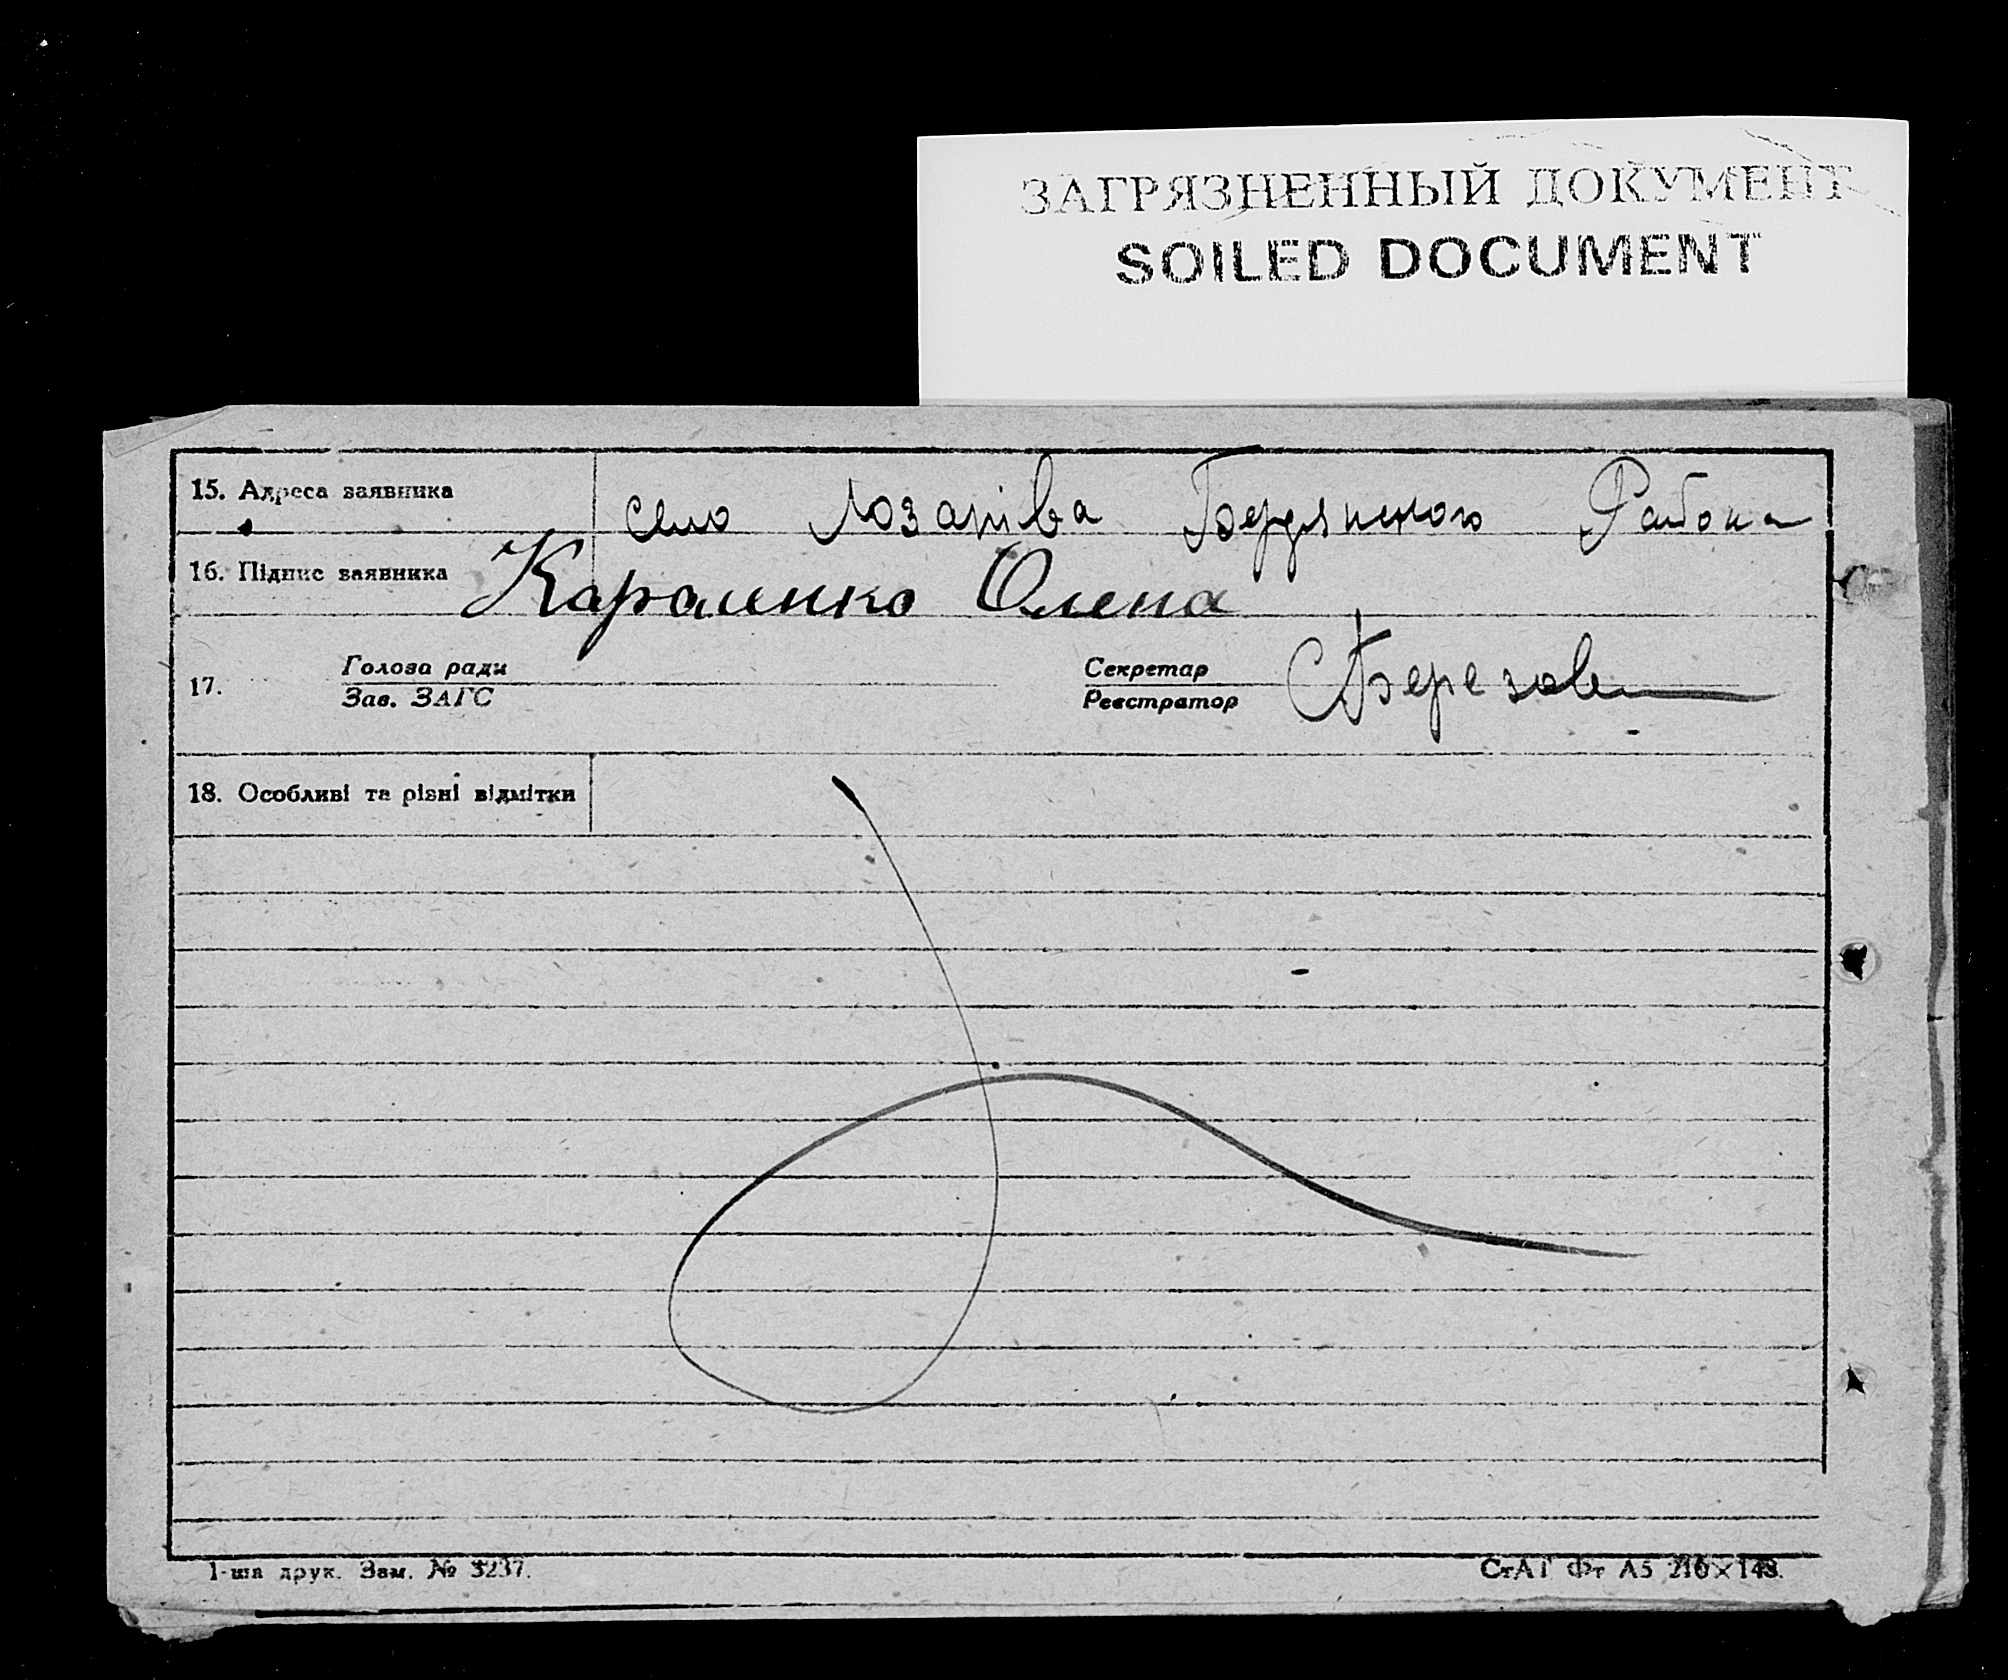 ЗАГРЯЗНЕННЫЙ ДОКУМЕНТ
SOILED DOCUMENT
15. Адреса заявника село Лозарівва Бердянського Района
16. Підпис заявника Кароленко Олена
17. Голова ради
Зав. ЗАГС
Секретар
Реєстратор
18. Особливі та різні відмітки
1-ша друк. Зам. № 3237.
СтАТ Фт А5 210×148.